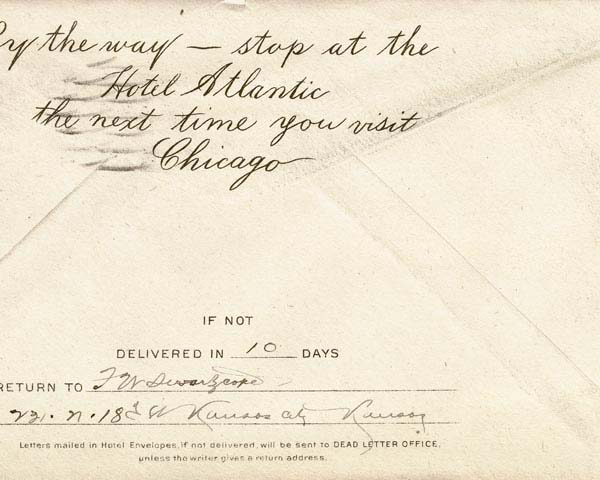 By the way — stop at the
Hotel Atlantic
the next time you visit
Chicago
IF NOT
DELIVERED IN 10 DAYS
RETURN TO F W
22. N. 18th St Kansas City Kansas
Letters mailed in Hotel Envelopes, if not delivered, will be sent to DEAD LETTER OFFICE,
unless the writer gives a return address.